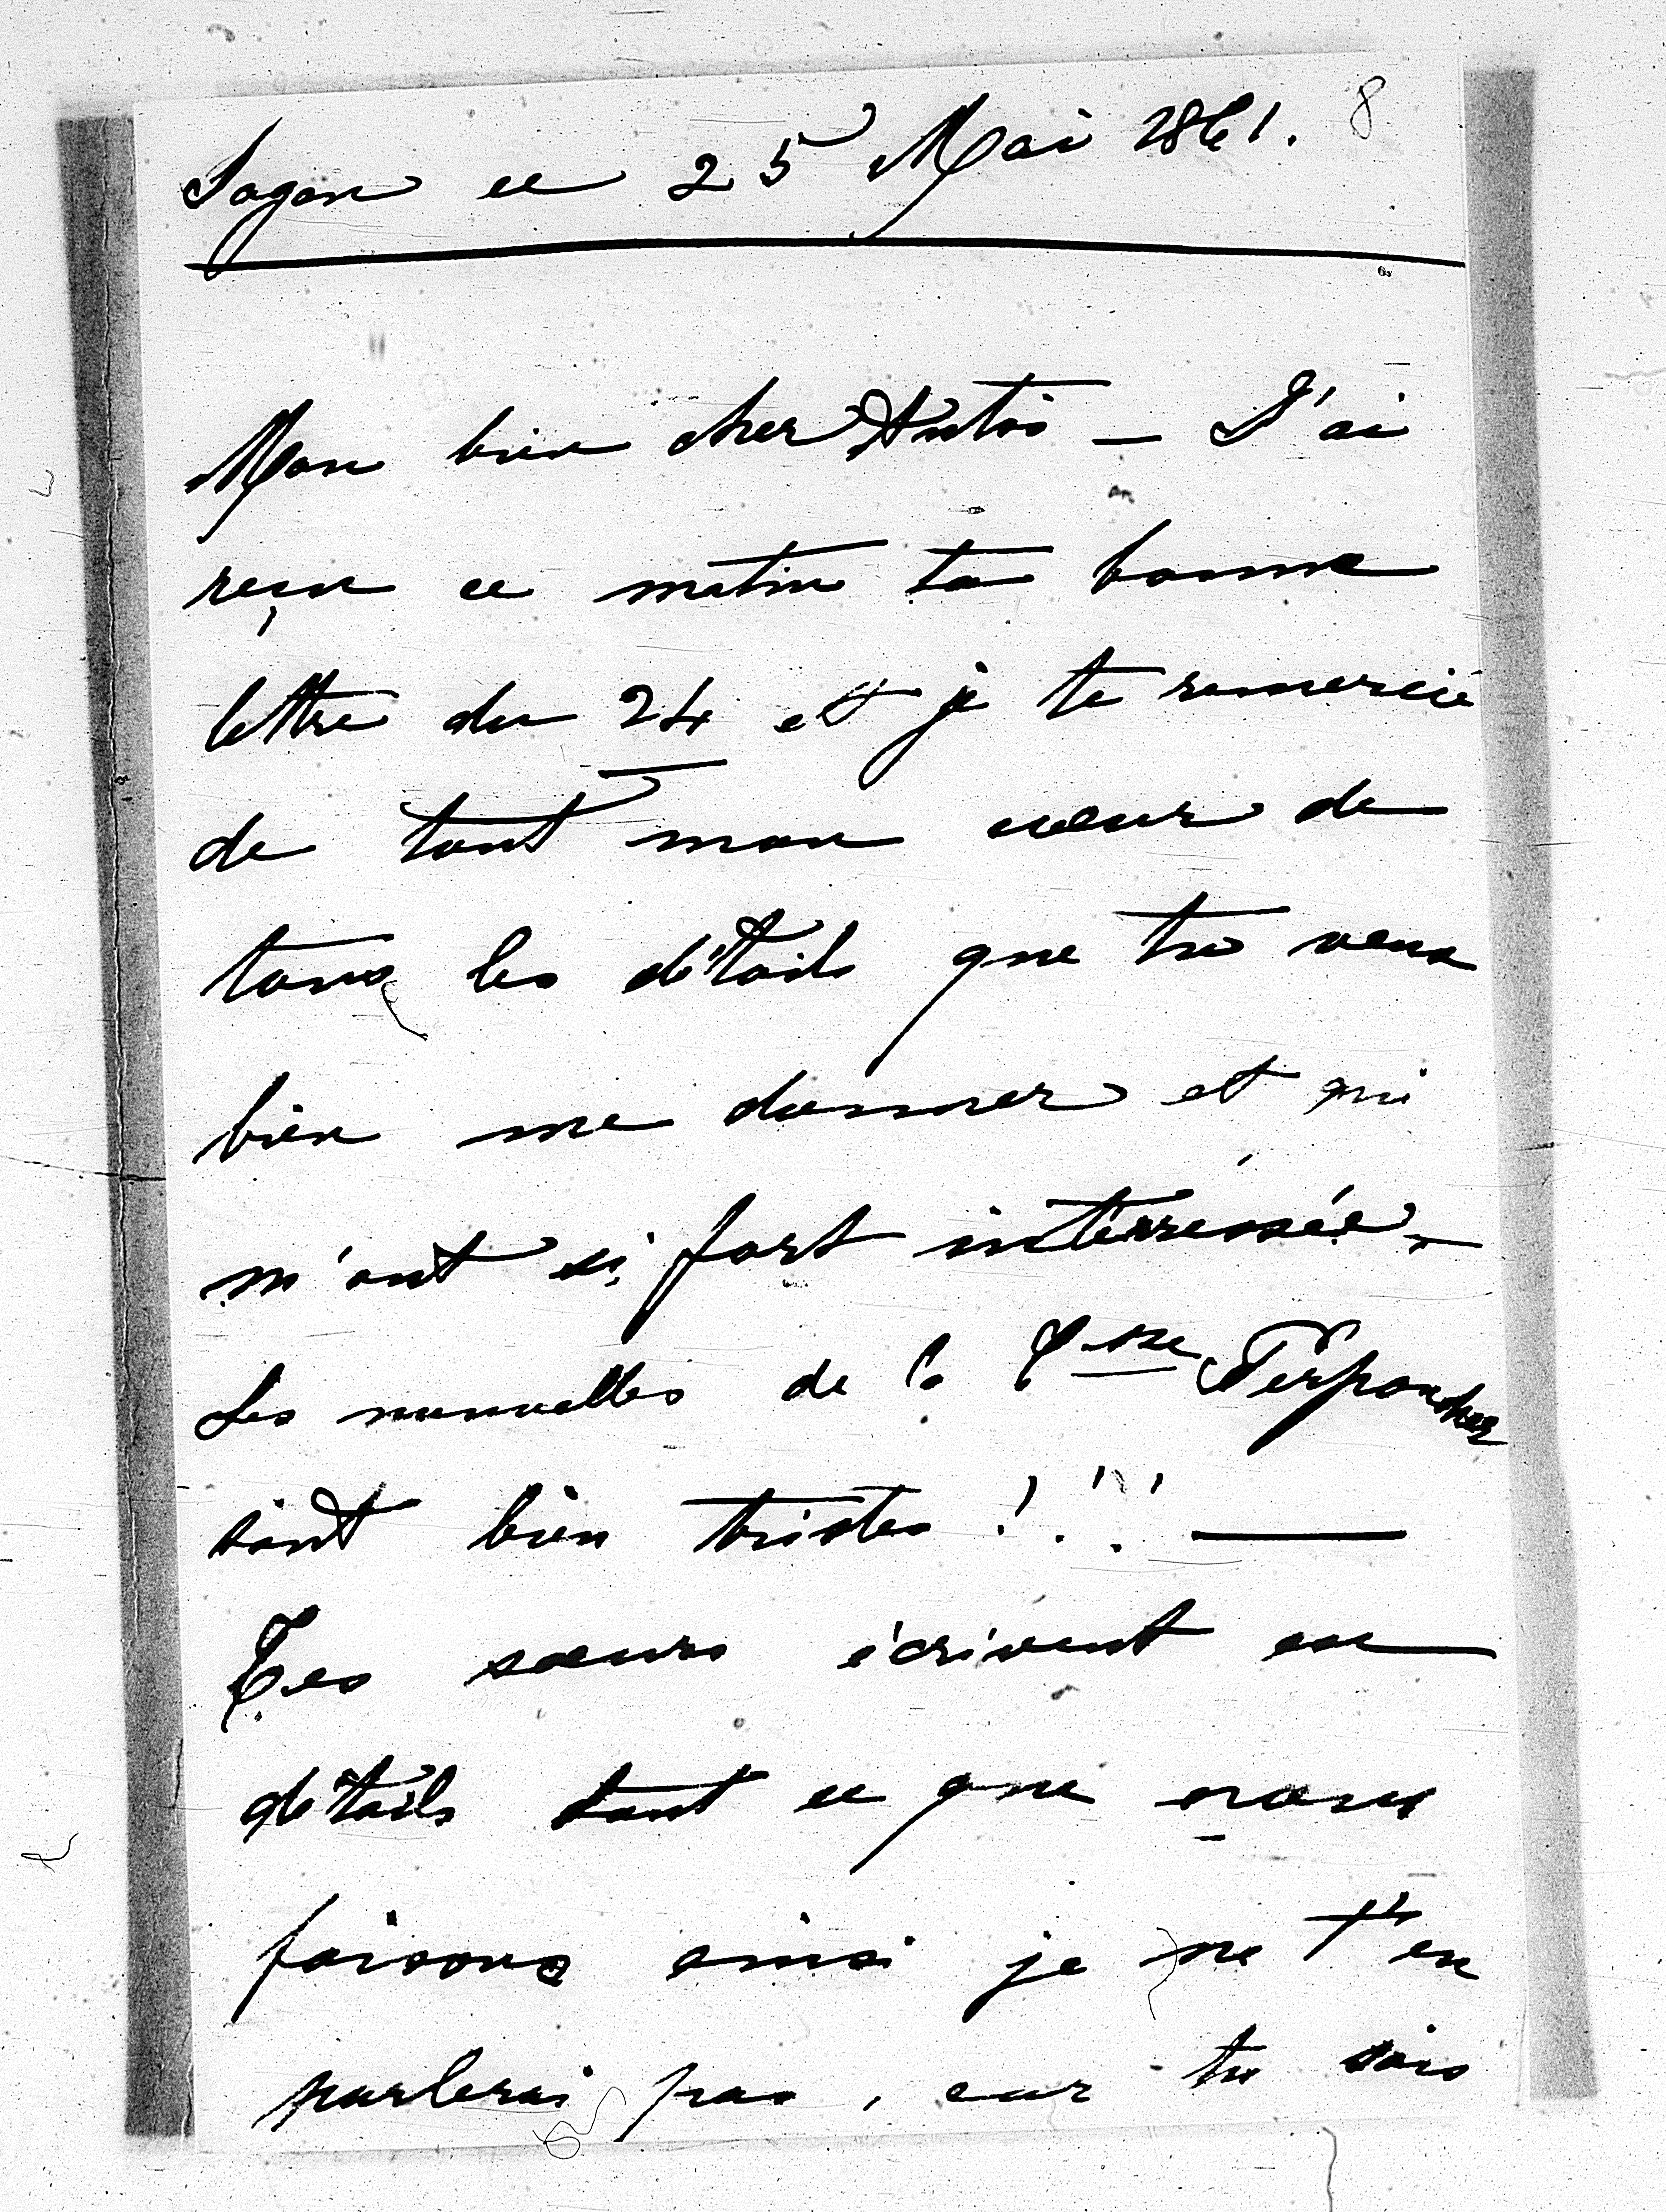 Sagan ce 25 Mai 1861. 8
Mon bien cher Antoi — J'ai
reçu ce matin ta bonne
lettre du 24 et je te remercie
de tout mon cœur de
tous les détails que tu veux
bien me donner et qui
m'ont si fort intérressée.
Les nouvelles de la Csse Perponcher
sont bien tristes !!! —
Tes sœurs écrivent en
détails tout ce que nous
faisons ainsi je ne t'en
parlerai pas, car tu sais